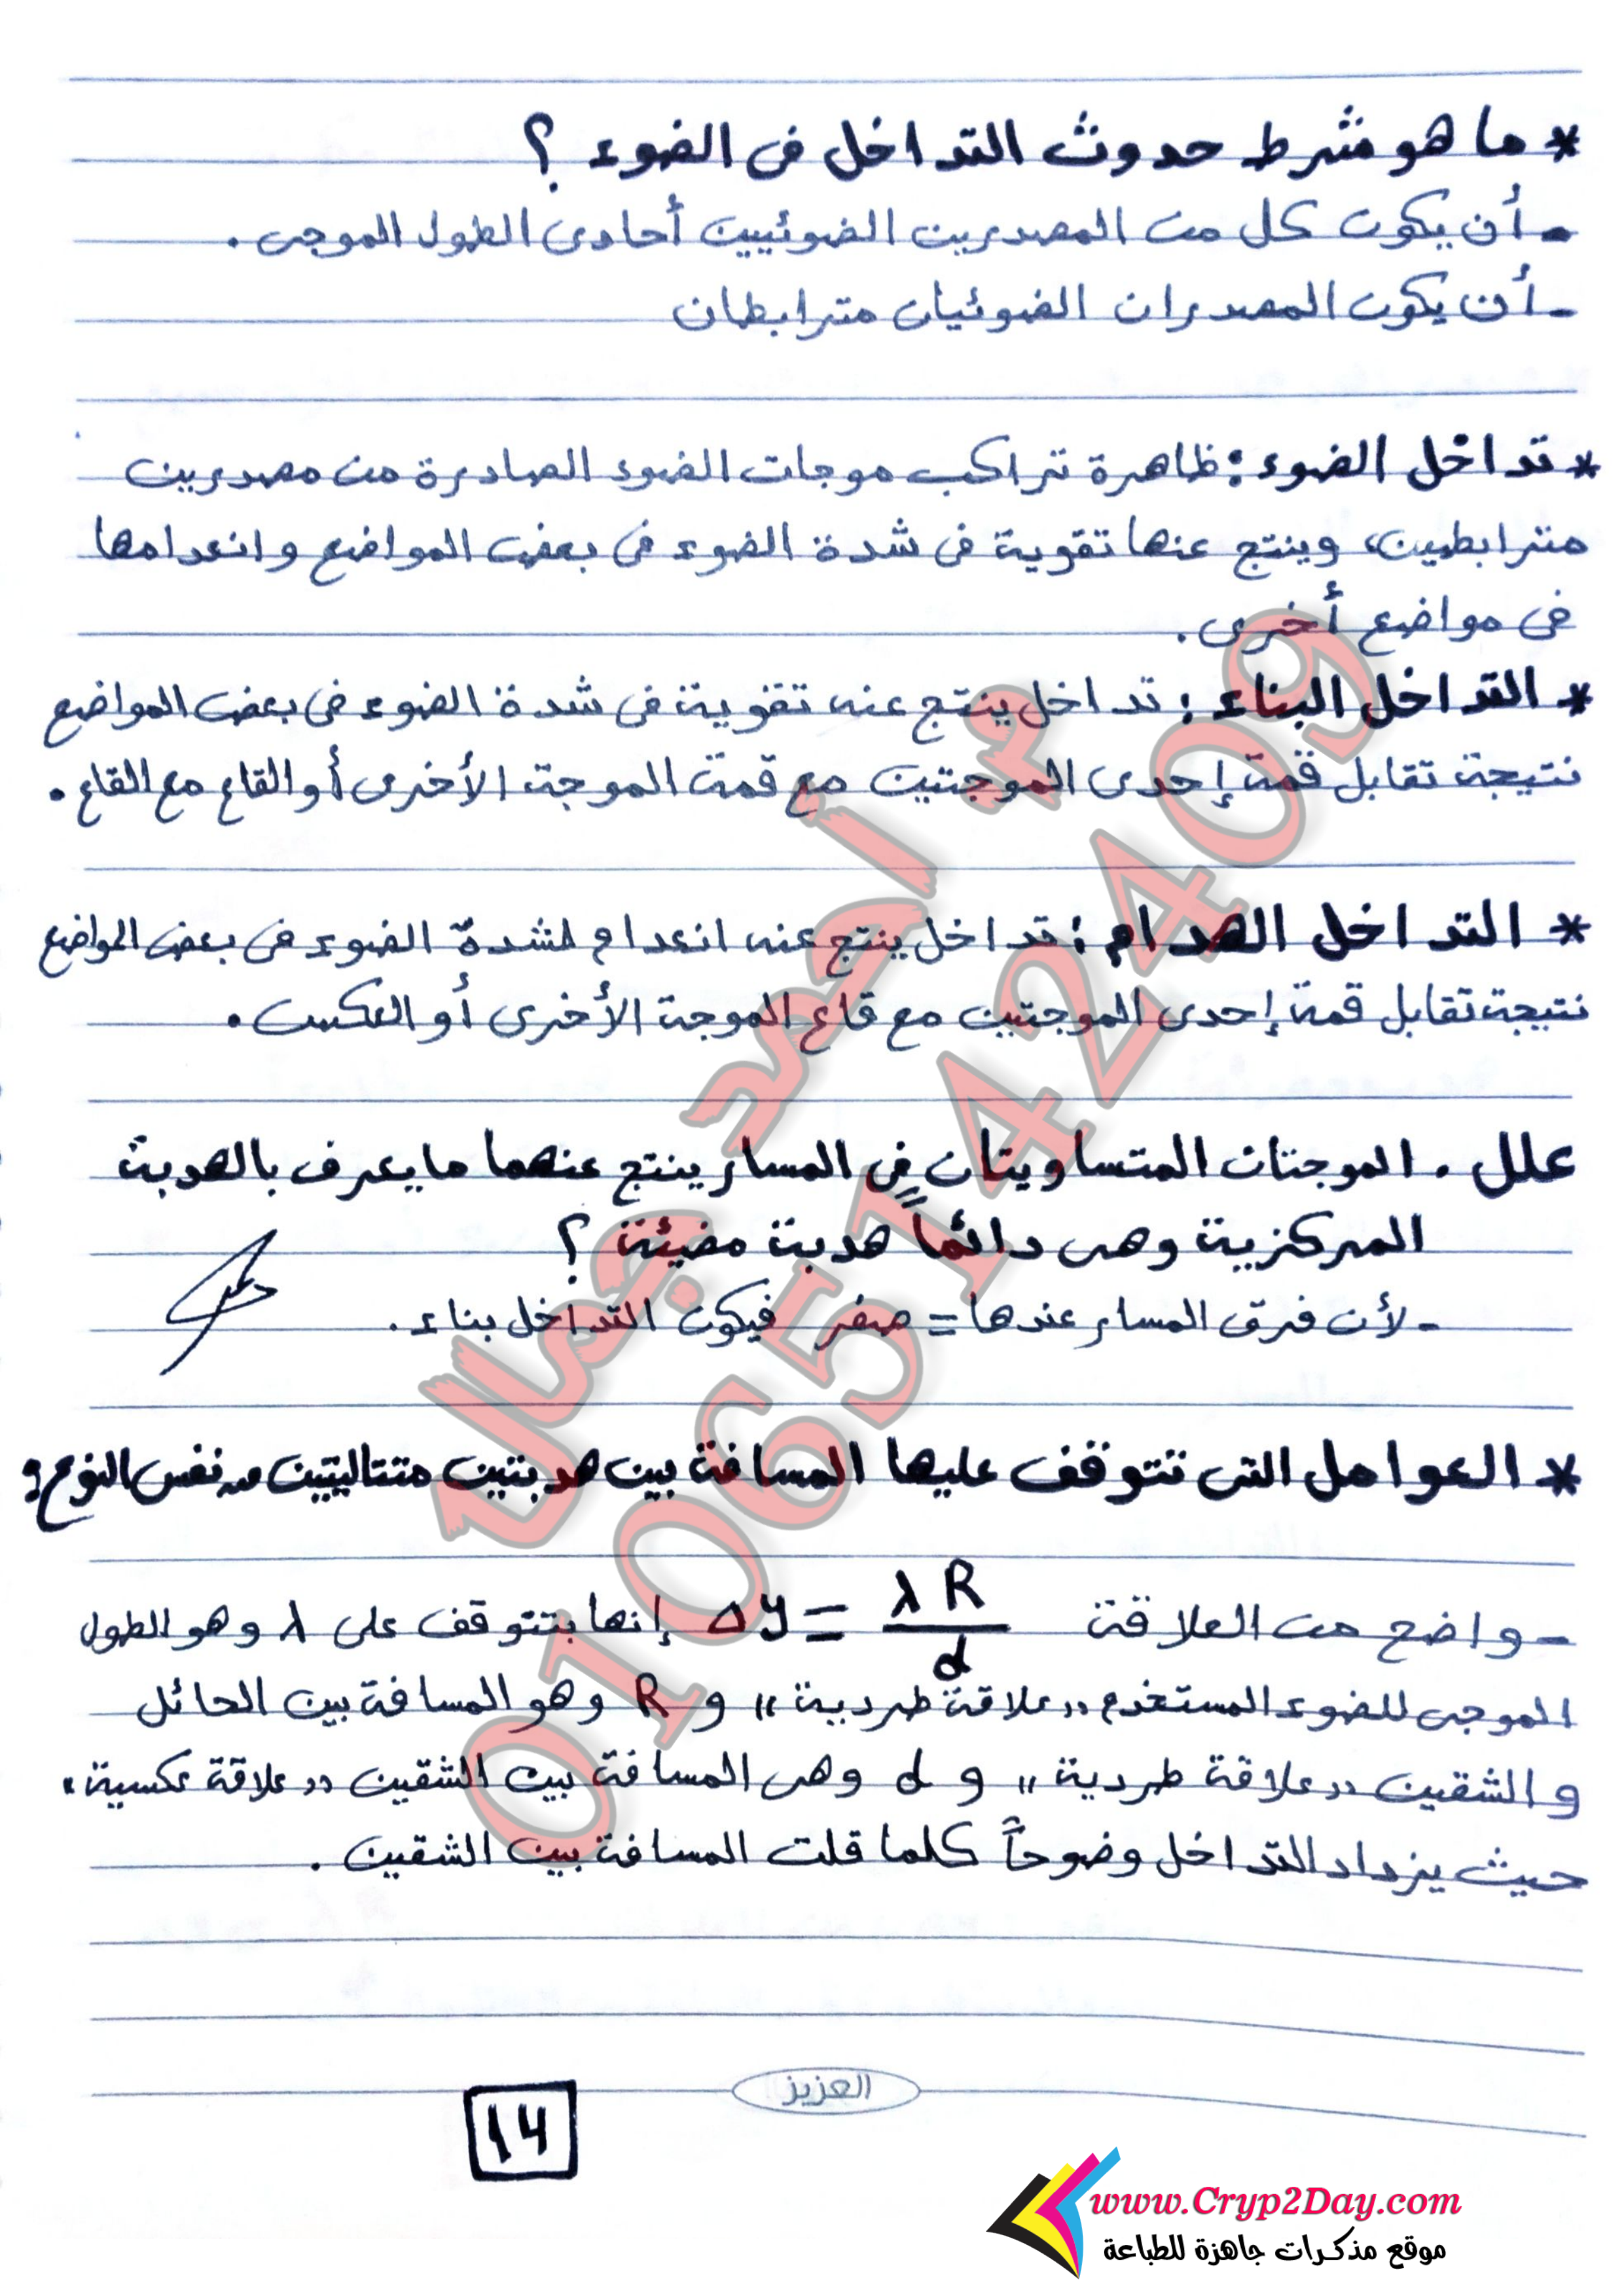 * ما هو شرط حدوث التداخل فى الضوء ؟
- أن يكون كل من المصدرين الضوئيين أحادى الطول الموجى .
- أن يكون المصدران الضوئيان مترابطان
* تداخل الضوء : ظاهرة تراكب موجات الضوء الصادرة من مصدرين
مترابطين، وينتج عنها تقوية فى شدة الضوء فى بعض المواضع وانعدامها
فى مواضع أخرى .
* التداخل البناء : تداخل ينتج عنه تقوية فى شدة الضوء فى بعض المواضع
نتيجة تقابل قمة إحدى الموجتين مع قمة الموجة الأخرى أو القاع مع القاع .
* التداخل الهدام : تداخل ينتج عنه انعدام لشدة الضوء فى بعض المواضع
نتيجة تقابل قمة إحدى الموجتين مع قاع الموجة الأخرى أو العكس .
علل . الموجتان المتساويتان فى المسار ينتج عنهما ما يعرف بالهدبة
المركزية وهى دائماً هدبة مضيئة ؟
- لأن فرق المسار عندها = صفر فيكون التداخل بناء .
* العوامل التى تتوقف عليها المسافة بين هدبتين متتاليتين من نفس النوع :
- واضح من العلاقة Δy = λR/d إنها بتتوقف على λ وهو الطول
الموجى للضوء المستخدم "علاقة طردية" و R وهو المسافة بين الحائل
و الشقين "علاقة طردية" و d وهى المسافة بين الشقين "علاقة عكسية"
حيث يزداد التداخل وضوحاً كلما قلت المسافة بين الشقين .
م. أحمد جمال
01065142409
العزيز
14
www.Cryp2Day.com
موقع مذكرات جاهزة للطباعة